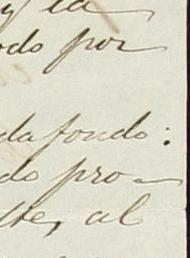 y la
odo por
da fondo:
do pro-
te, al